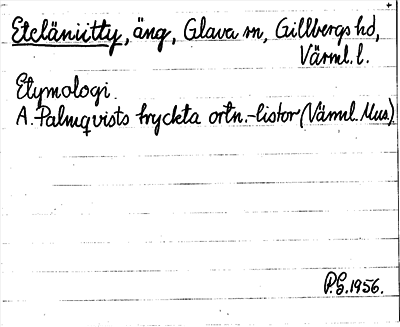 Eteläniitty, äng, Glava sn, Gillbergs hd,
Värml. l.
Etymologi.
A. Palmqvists tryckta ortn.-listor (Värml. Mus.)
P.G. 1956.